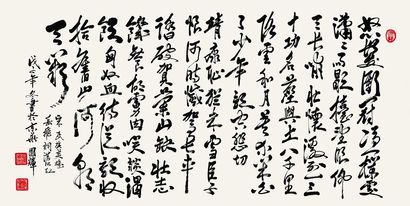 怒髮衝冠憑欄處
瀟瀟雨歇擡望眼仰
天長嘯壯懷激烈三
十功名塵與土八千里
路雲和月莫等閒白
了少年頭空悲切
靖康恥猶未雪臣子
恨何時滅駕長車
踏破賀蘭山缺壯志
飢餐胡虜肉笑談渴
飲匈奴血待從頭收
拾舊山河朝
天闕
宋民族英雄
岳飛詞滿江紅
年冬書於京